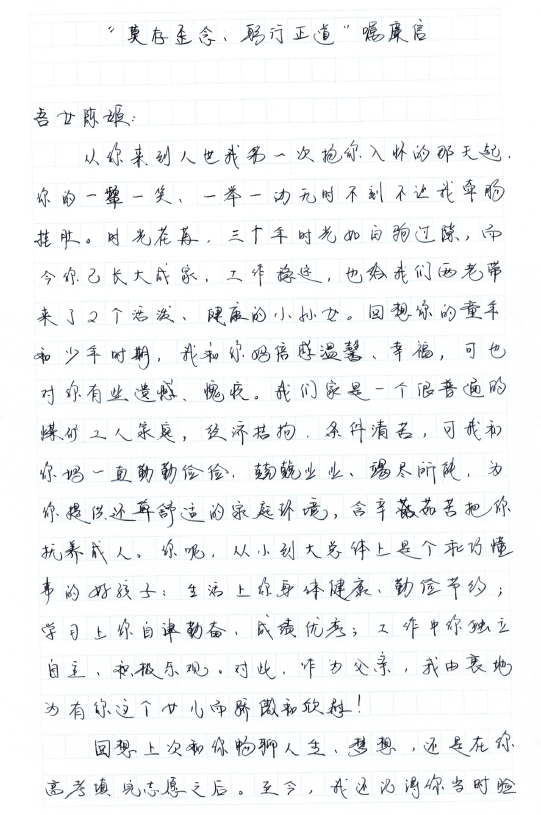 “莫存歪念、躬行正道”嘱廉信
吾女陈姬：
从你来到人世我第一次抱你入怀的那天起，
你的一颦一笑、一举一动无时不刻不让我牵肠
挂肚。时光荏苒，三十年时光如白驹过隙，而
今你已长大成家，工作稳定，也给我们两老带
来了2个活泼、健康的小孙女。回想你的童年
和少年时期，我和你妈倍感温馨、幸福，可也
对你有些遗憾、愧疚。我们家是一个很普通的
煤矿工人家庭，经济拮拘，条件清苦，可我和
你妈一直勤勤俭俭，兢兢业业、竭尽所能，为
你提供还算舒适的家庭环境，含辛茹苦把你
抚养成人。你呢，从小到大总体上是个乖巧懂
事的好孩子：生活上你身体健康、勤俭节约；
学习上你自律勤奋、成绩优秀；工作中你独立
自主、积极乐观。对此，作为父亲，我由衷地
为有你这个女儿而骄傲和欣慰！
回想上次和你畅聊人生、梦想，还是在你
高考填完志愿之后。至今，我还记得你当时脸